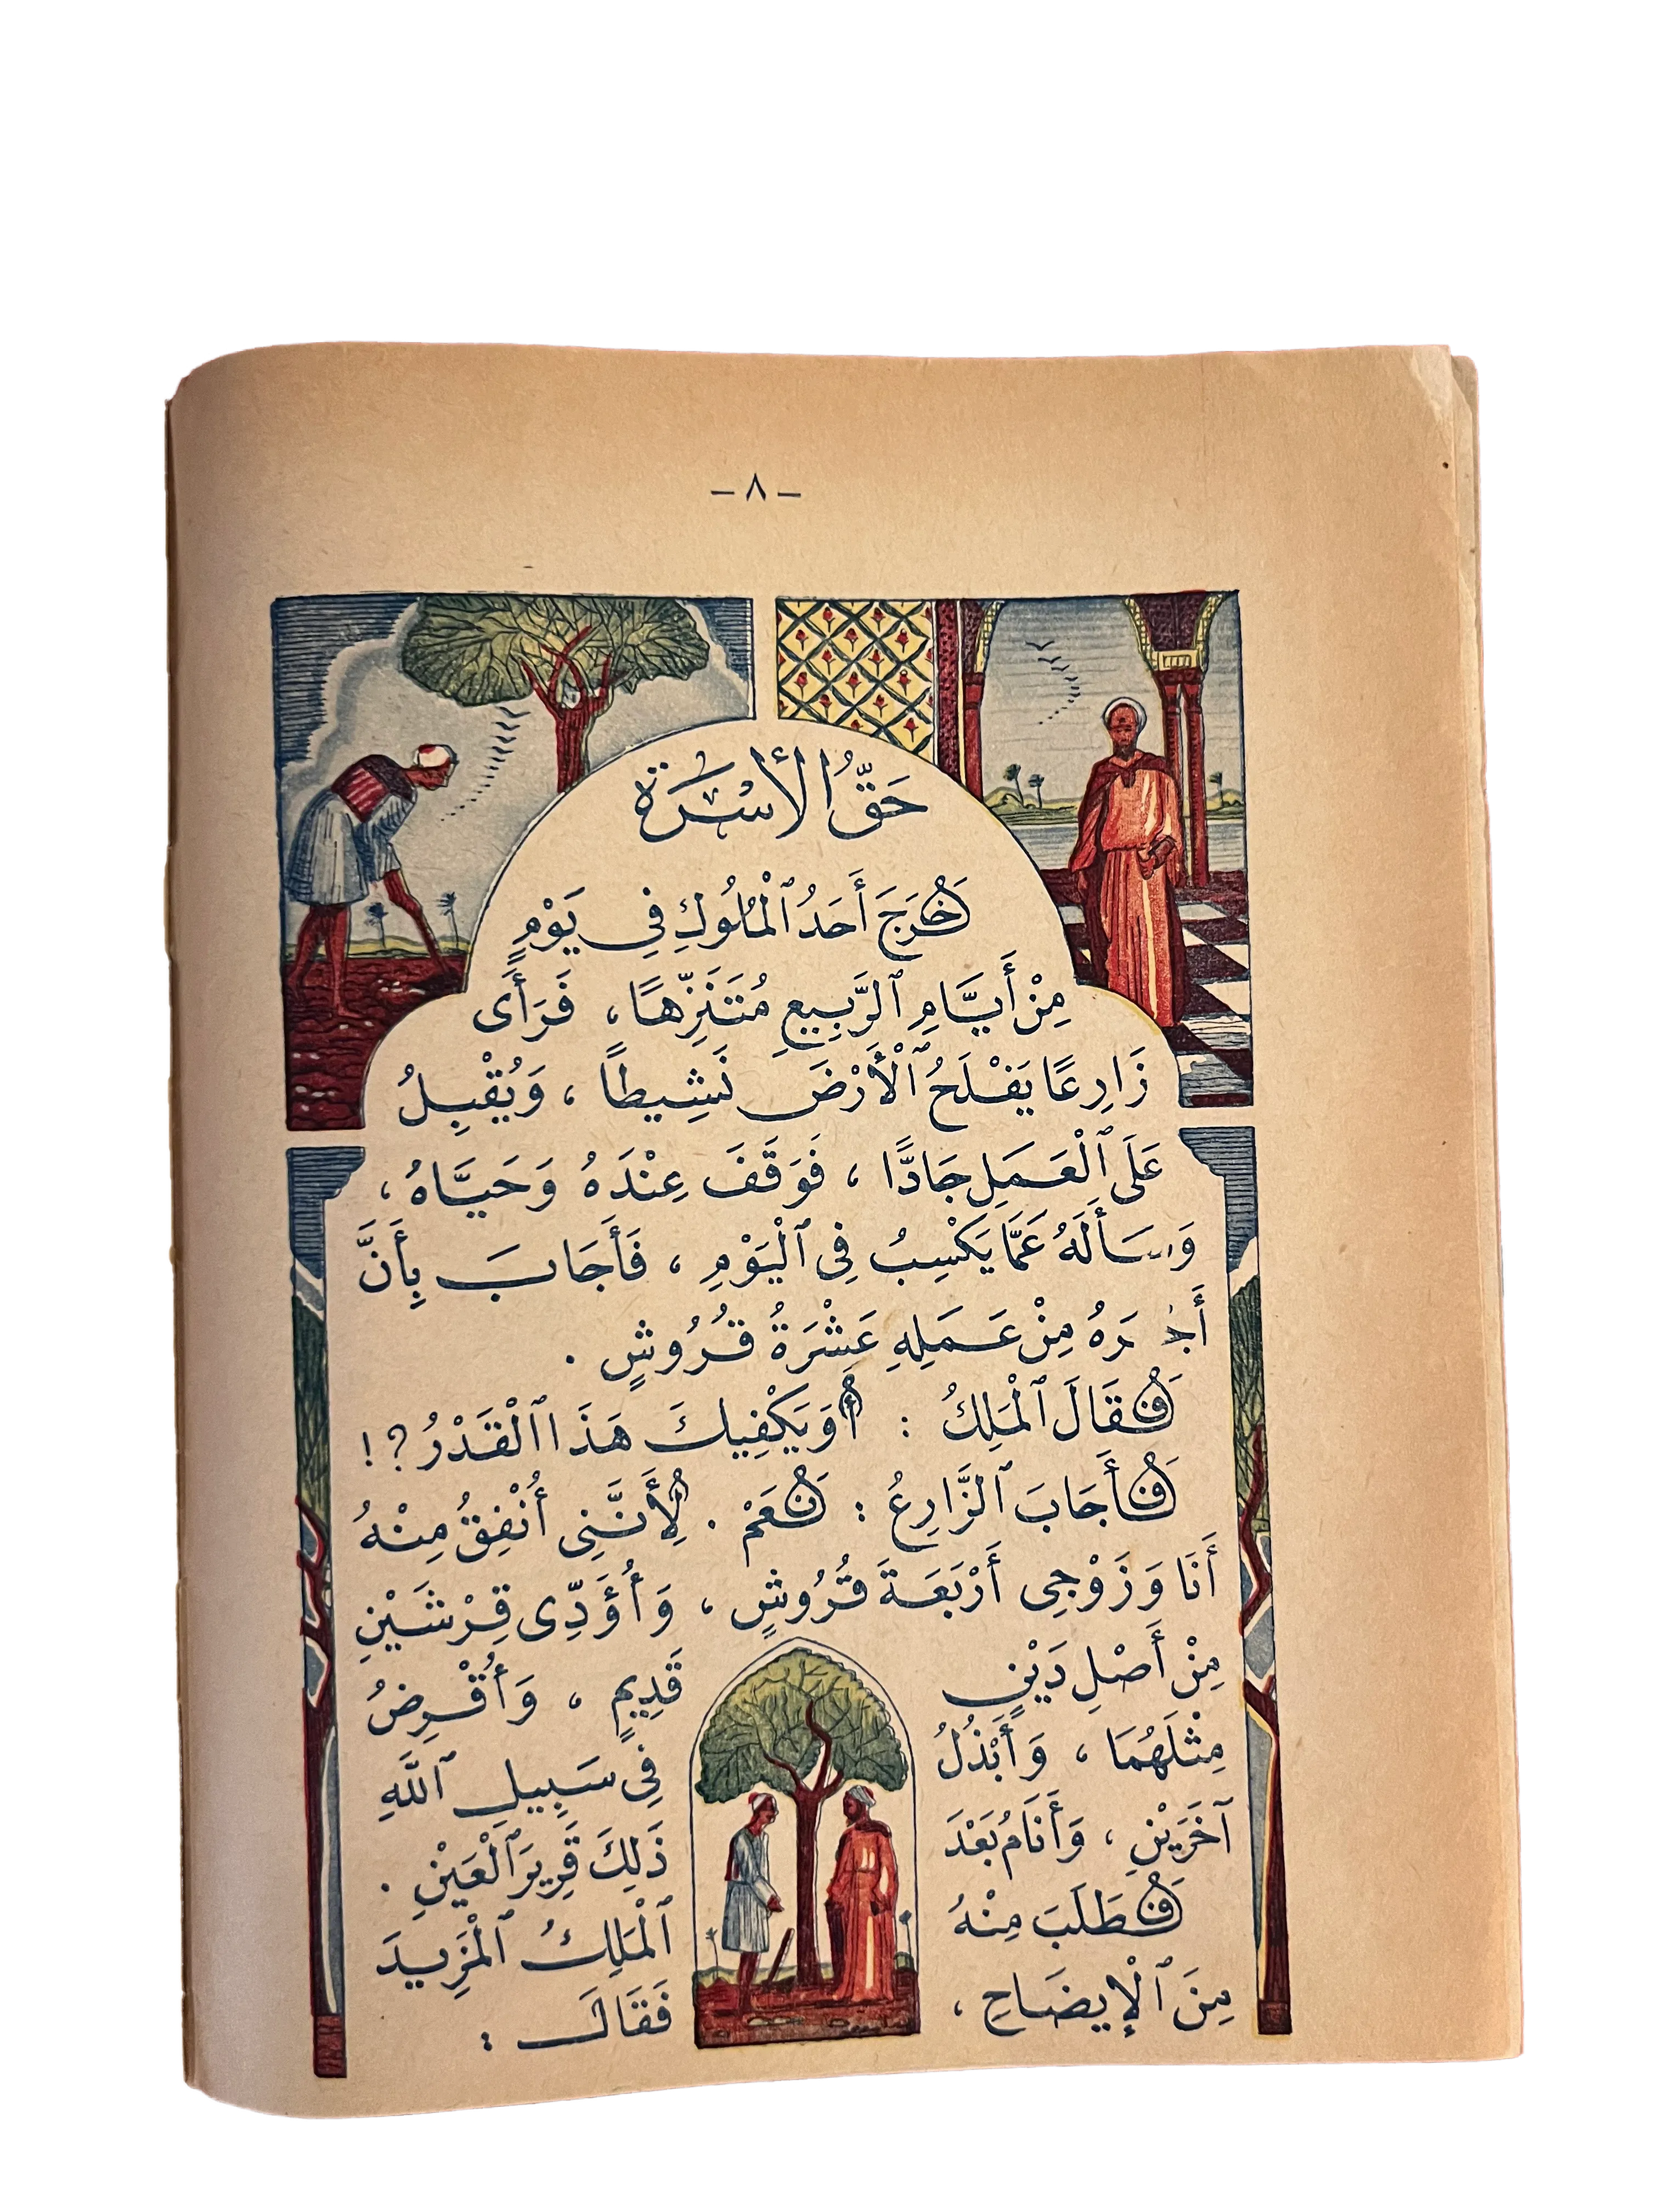 - ٨ -
حَقُّ الأُسْرَةِ
خَرَجَ أَحَدُ ٱلْمُلُوكِ فِي يَوْمٍ
مِنْ أَيَّامِ ٱلرَّبِيعِ مُتَنَزِّهًا، فَرَأَى
زَارِعًا يَفْلَحُ ٱلْأَرْضَ نَشِيطًا، وَيُقْبِلُ
عَلَى ٱلْعَمَلِ جَادًّا، فَوَقَفَ عِنْدَهُ وَحَيَّاهُ،
وَسَأَلَهُ عَمَّا يَكْسِبُ فِى ٱلْيَوْمِ، فَأَجَابَ بِأَنَّ
أَجْرَهُ مِنْ عَمَلِهِ عَشْرَةُ قُرُوشٍ.
فَقَالَ ٱلْمَلِكُ : أَوَيَكْفِيكَ هَذَا ٱلْقَدْرُ؟!
فَأَجَابَ ٱلزَّارِعُ : نَعَمْ. لِأَنَّنِى أُنْفِقُ مِنْهُ
أَنَا وَزَوْجِى أَرْبَعَةَ قُرُوشٍ، وَأُؤَدِّى قِرْشَيْنِ
مِنْ أَصْلِ دَيْنٍ قَدِيمٍ، وَأُقْرِضُ
مِثْلَهُمَا، وَأَبْذُلُ فِى سَبِيلِ ٱللَّهِ
آخَرَيْنِ، وَأَنَامُ بَعْدَ ذَلِكَ قَرِيرَ ٱلْعَيْنِ.
فَطَلَبَ مِنْهُ ٱلْمَلِكُ ٱلْمَزِيدَ
مِنَ ٱلْإِيضَاحِ، فَقَالَ :